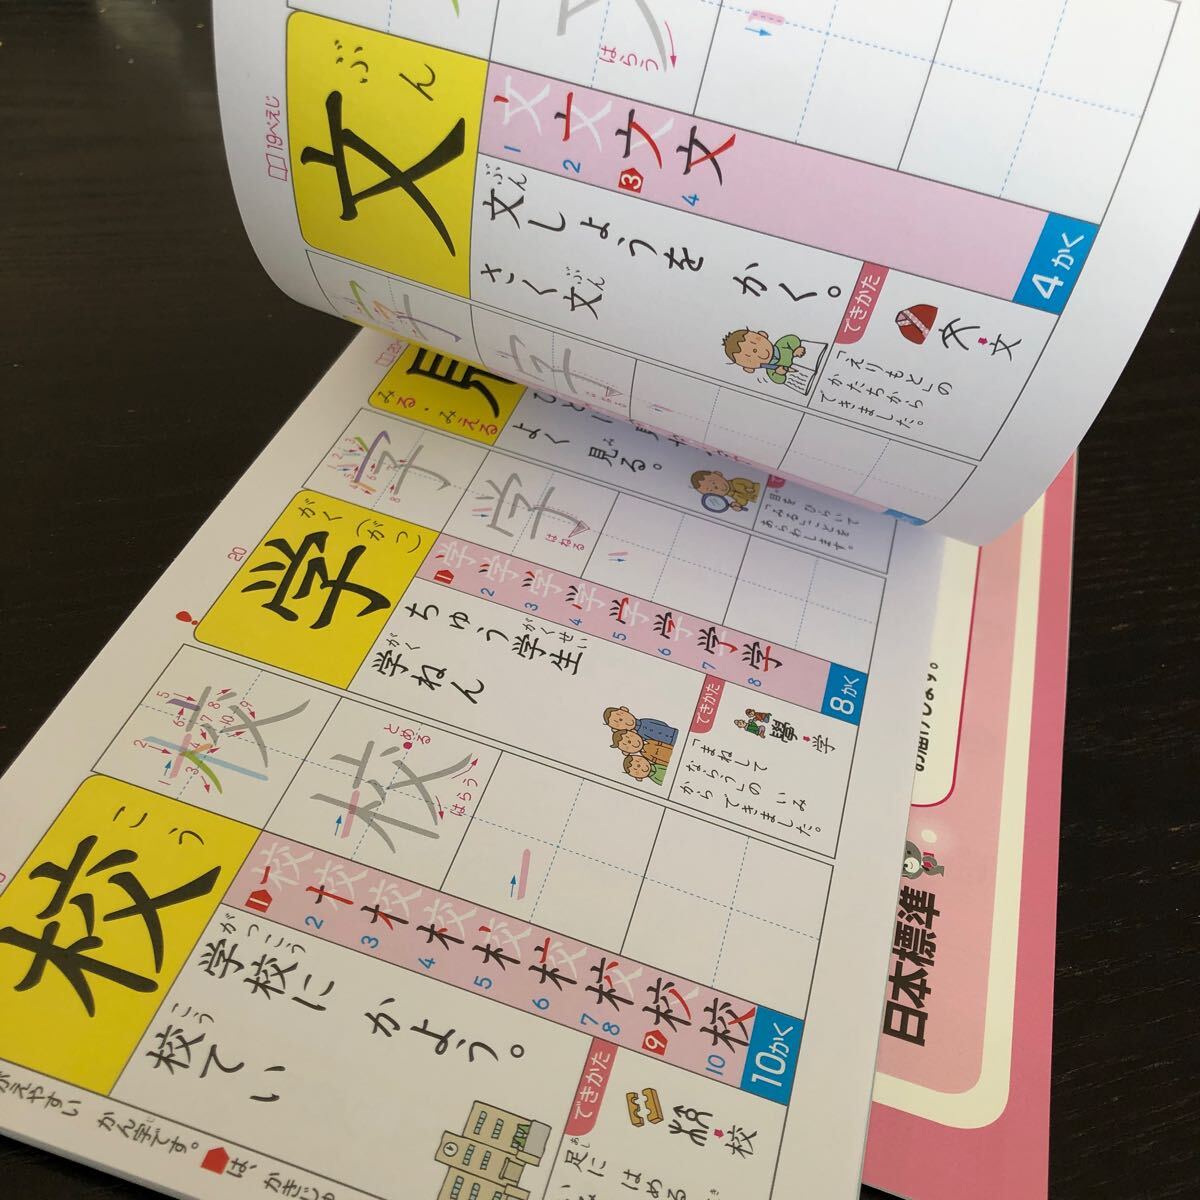 19ぺえじ
ぶん
文
はらう
文文文文
1 2 3 4
4かく
文しょうを かく。
ぶん
さく文
ぶん
できかた
文
「えりもと」の
かたちから
できました。
見
みる・みえる
よく 見る。
み
目を ひらいて
「みる」ことを
あらわします。
20
がく
(がっ)
学
はねる
学学学学学学学学
1 2 3 4 5 6 7 8
8かく
ちゅう学生
がくせい
学ねん
がく
できかた
學 学
「まねして
ならう」の いみ
から できました。
こう
校
とめる
はらう
校校校校校校校校校
1 2 3 4 5 6 7 8 9 10
10かく
学校に かよう。
がっこう
校てい
こう
できかた
校
足に はめる
あし
がえやすい かん字です。
は、かきじゅ
お届けします。
日本標準